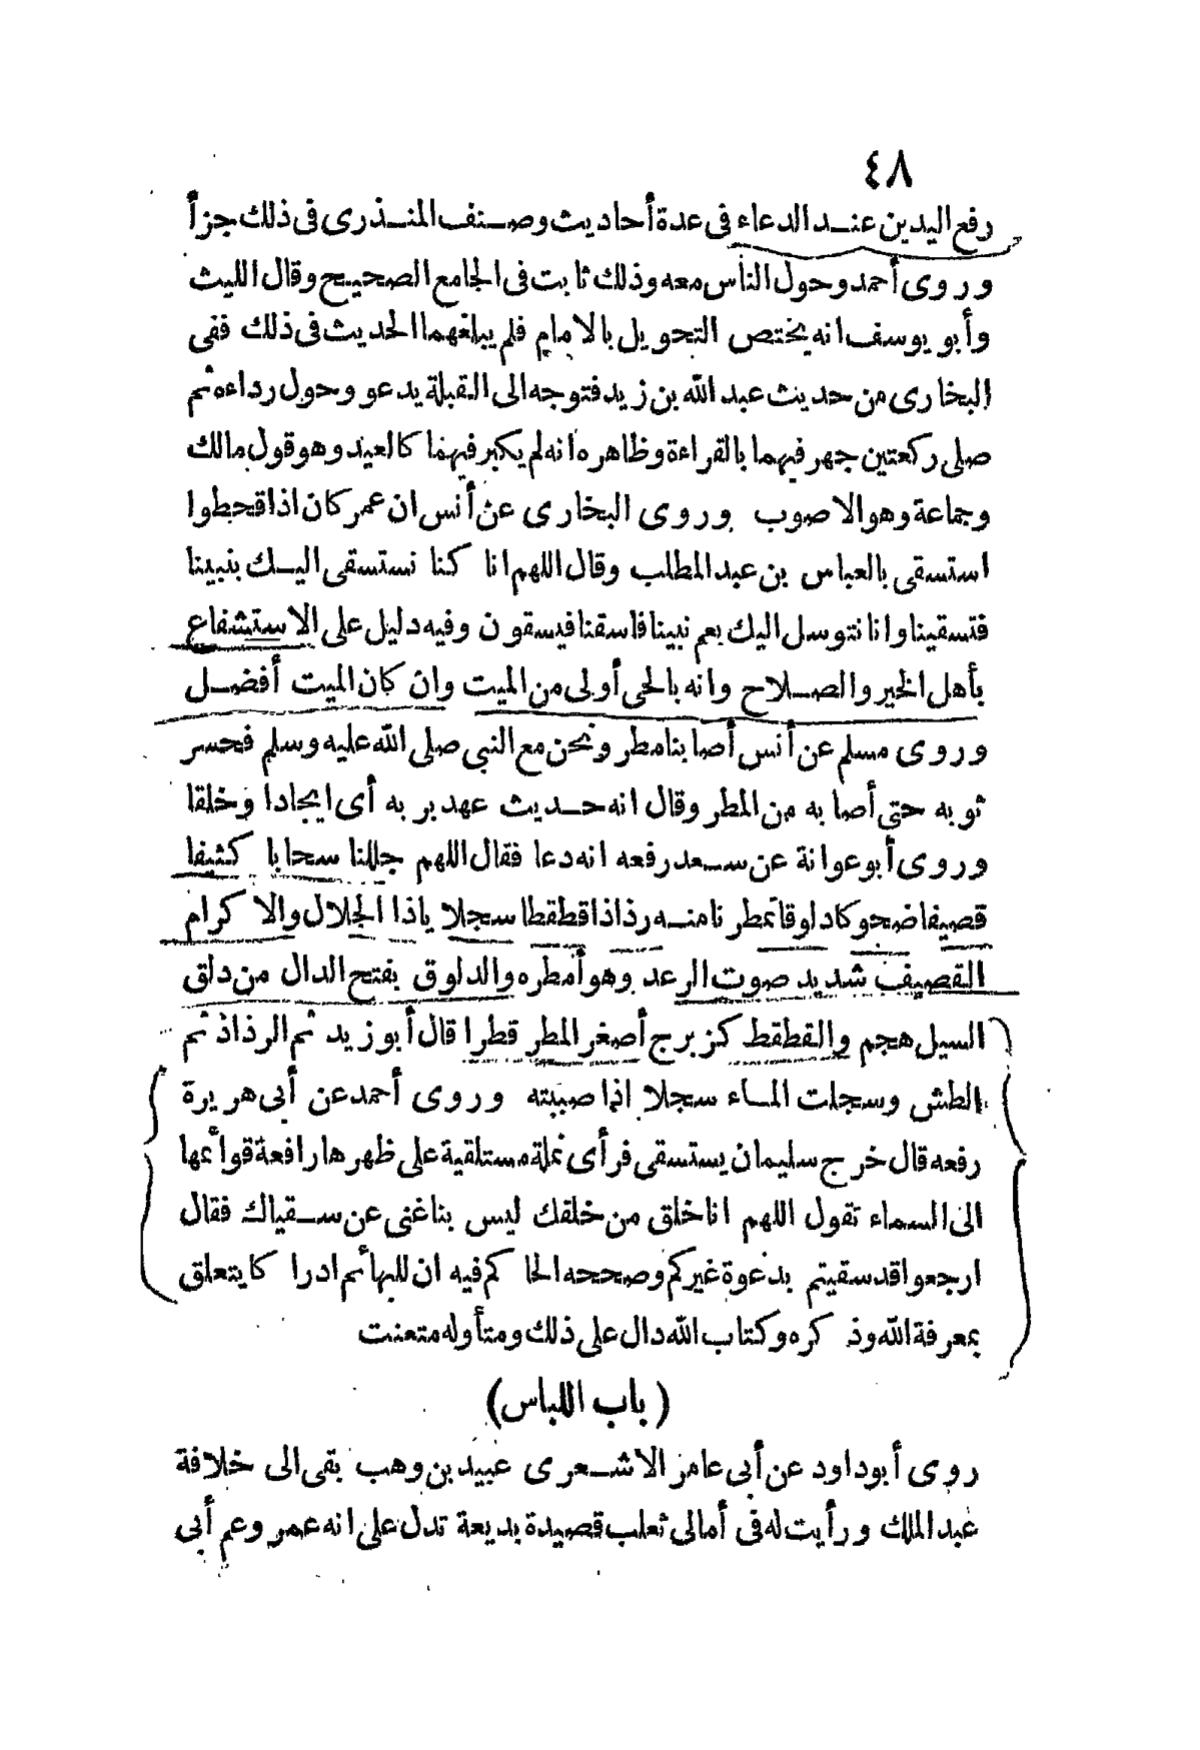 ٤٨
رفع اليدين عند الدعاء فى عدة أحاديث وصنف المنذرى فى ذلك جزأ
وروى أحمد وحول الناس معه وذلك ثابت فى الجامع الصحيح وقال الليث
وأبو يوسف انه يختص التحويل بالامام فلم يبلغهما الحديث فى ذلك ففى
البخارى من حديث عبد الله بن زيد فتوجه الى القبلة يدعو وحول رداءه ثم
صلى ركعتين جهر فيهما بالقراءة وظاهره انه لم يكبر فيهما كالعيد وهو قول مالك
وجماعة وهو الاصوب وروى البخارى عن أنس ان عمر كان اذا قحطوا
استسقى بالعباس بن عبد المطلب وقال اللهم انا كنا نستسقى اليك بنبينا
فتسقينا وانا نتوسل اليك بعم نبينا فاسقنا فيسقون وفيه دليل على الاستشفاع
بأهل الخير والصلاح وانه بالحى أولى من الميت وان كان الميت أفضل
وروى مسلم عن أنس أصابنا مطر ونحن مع النبى صلى الله عليه وسلم فحسر
ثوبه حتى أصابه من المطر وقال انه حديث عهد بربه أى ايجادا وخلقا
وروى أبو عوانة عن سعد رفعه انه دعا فقال اللهم جللنا سحابا كثيفا
قصيفا ضحوكا دلوقا تمطرنا منه رذاذا قطقطا سجلا ياذا الجلال والاكرام
القصيف شديد صوت الرعد وهو أمطره والدلوق بفتح الدال من دلق
السيل هجم والقطقط كزبرج أصغر المطر قطرا قال أبو زيد ثم الرذاذ ثم
الطش وسجلت الماء سجلا اذا صببته وروى أحمد عن أبى هريرة
رفعه قال خرج سليمان يستسقى فرأى نملة مستلقية على ظهرها رافعة قوائمها
الى السماء تقول اللهم انا خلق من خلقك ليس بنا غنى عن سقياك فقال
ارجعوا قد سقيتم بدعوة غيركم وصححه الحاكم فيه ان للبهائم ادراكا يتعلق
بمعرفة الله وذكره وكتاب الله دال على ذلك ومتأوله متعنت
(باب اللباس)
روى أبو داود عن أبى عامر الاشعرى عبيد بن وهب بقى الى خلافة
عبد الملك ورأيت له فى أمالى ثعلب قصيدة بديعة تدل على انه عمر وعم أبى